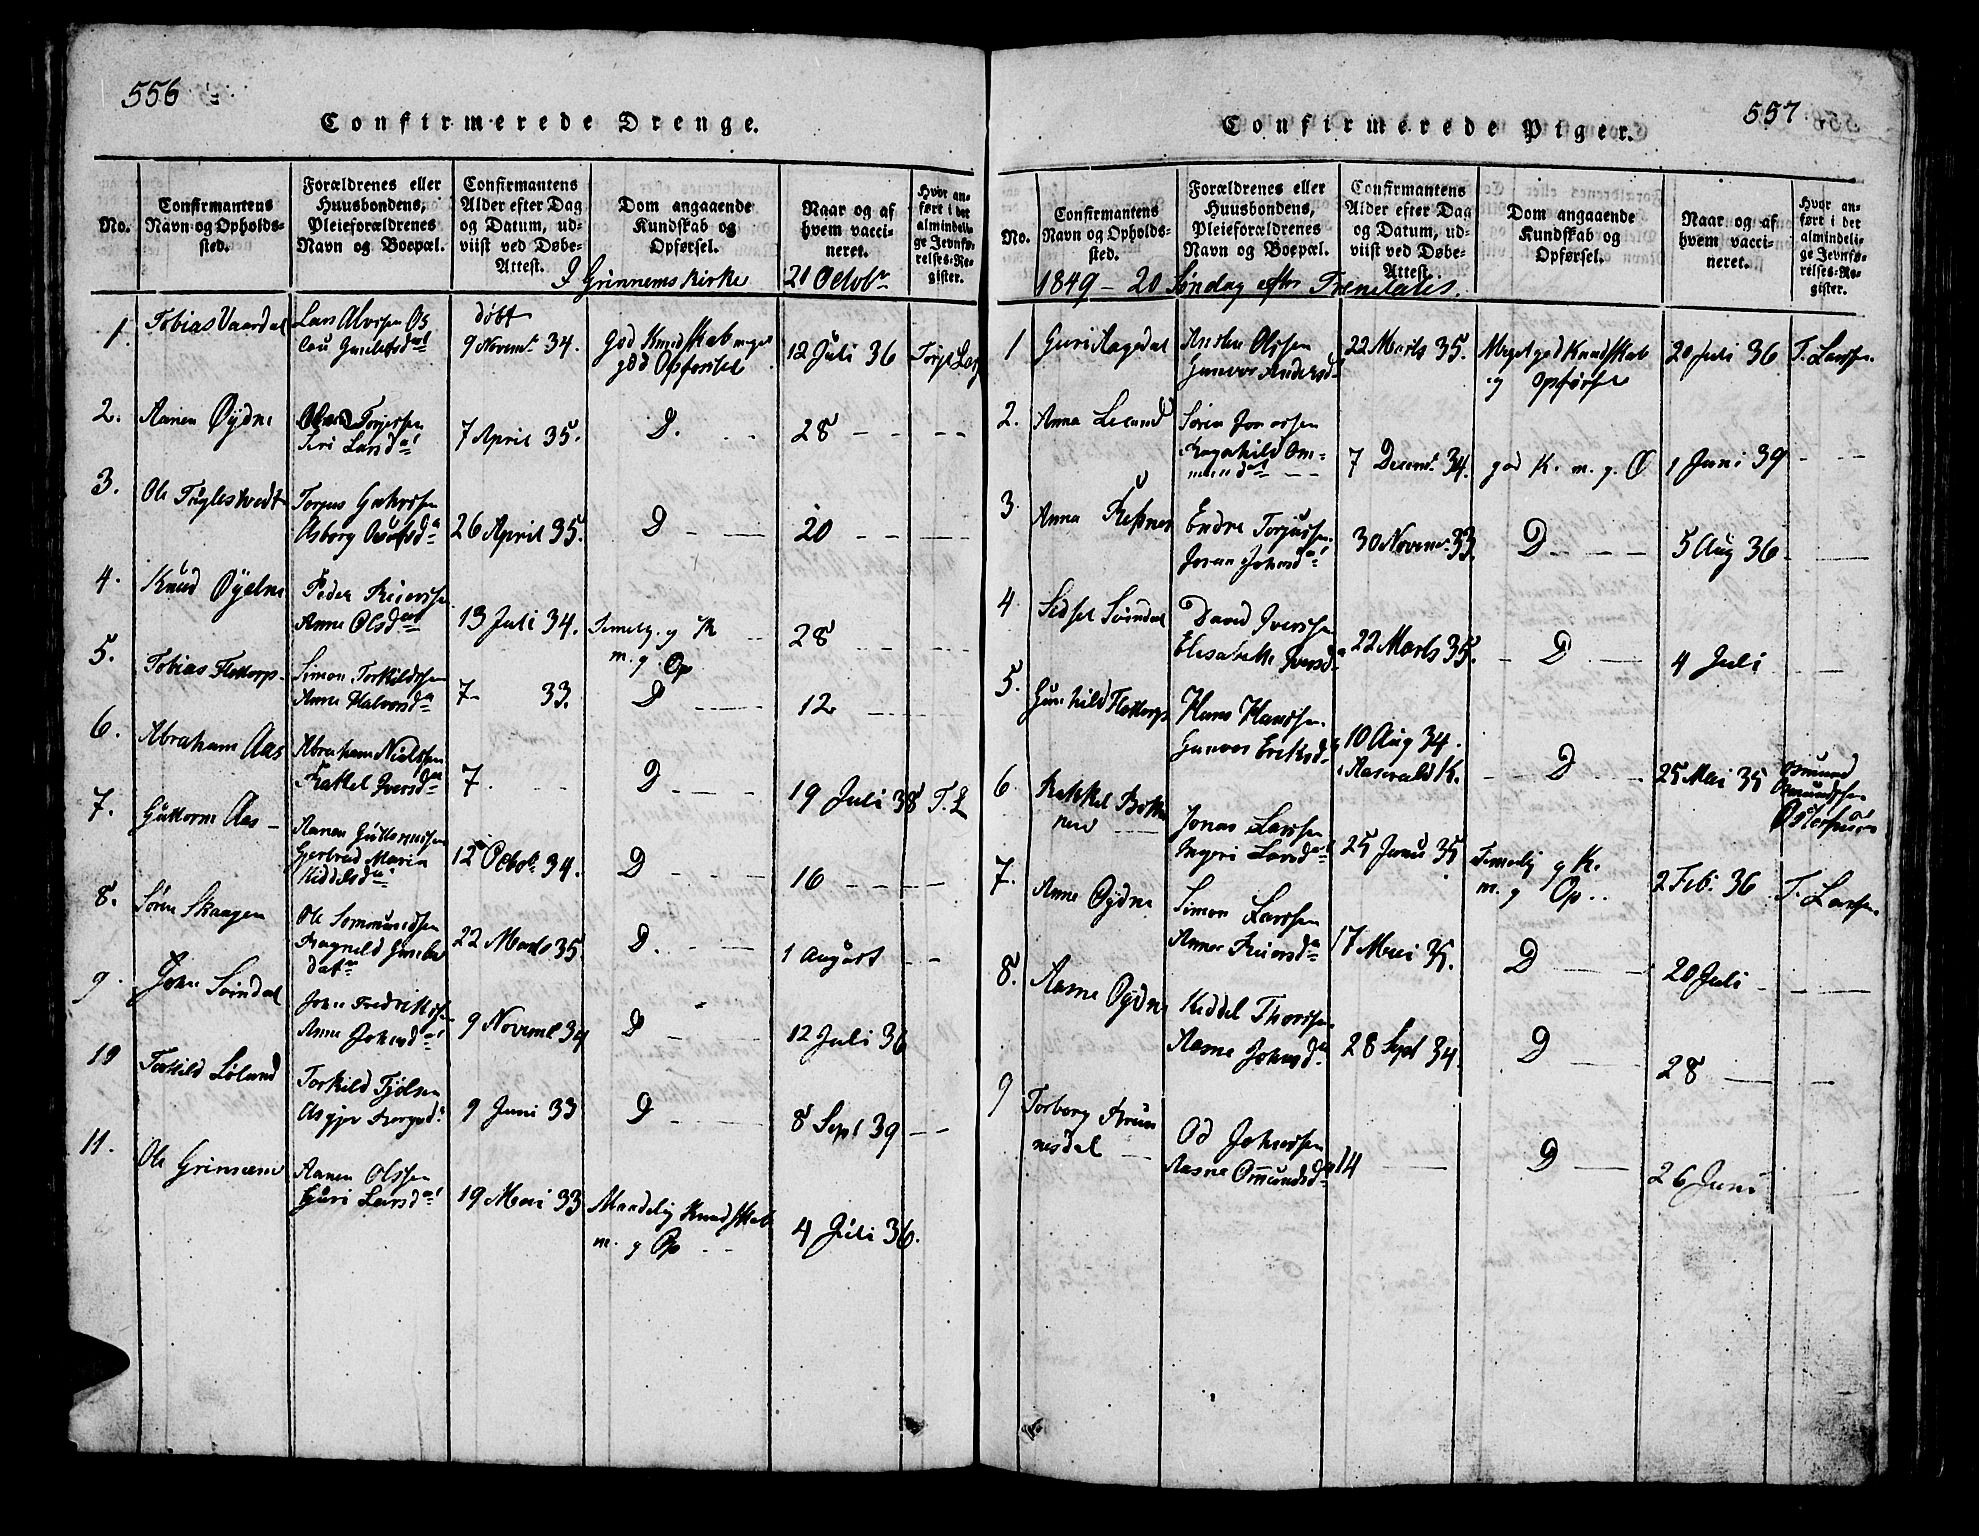 556
Confirmerede Drenge.
No.
Confirmantens Navn og Opholds-sted.
Forældrenes eller Huusbondens, Pleieforældrenes Navn og Boepæl.
Confirmantens Alder efter Dag og Datum, ud-viist ved Døbe-Attest.
Dom angaaende Kundskab og Opførsel.
Naar og af hvem vacci-neret.
Hvor an-ført i det almindeli-ge Jevnfø-relses-Re-gister.
I Grinnems Kirke 21 Octobr
1. Tobias Vaardal
Lars Alvssen Os
døbt
9 Novembr 34.
god Kundskab meget
god Opførsel
12 Juli 36
2. Aanen Øydne
Torjessen
Siri Larsdatr
7 April 35.
D.
28
3. Ole Fuglestvedt
Asborg
26 April 35.
D
20
4. Knud Øydne
Peder Reierssen
Anne Olsdatr
13 Juli 34.
Temelig g K
m. g. Op
28
5. Tobias Flottorp
Simon Torkildssen
Anne Halvorsda
7 33.
D
12
6. Abraham Aas
Abraham Nielssen
Iversda
7
D
19 Juli 38
T. L
7. Guttorm Aas
Aanen Guttormssen
Gjertrud Maria
Kiddelsda
12 Octobr 34.
D
16
8. Søren Skaagen
Ole Sommundssen
datr
22 Marts 35
D.
1 August
9. John Sørndal
John Fredrikssen
Anne Johnsda
9 Novembr 34
D
12 Juli 36
10 Torkild Løland
Torkild Tjølsen
9 Juni 33
D
8 Sept 39
11. Ole Grimnem
Aanen Olssen
Guri Larsda
19 Mai 33
Maadelig Kundskab
m. g Op
4 Juli 36.
557.
Confirmerede Piger.
No.
Confirmantens Navn og Opholds-sted.
Forældrenes eller Huusbondens, Pleieforældrenes Navn og Boepæl.
Confirmantens Alder efter Dag og Datum, ud-viist ved Døbe-Attest.
Dom angaaende Kundskab og Opførsel.
Naar og af hvem vacci-neret.
Hvor an-ført i det almindeli-ge Jevnfø-relses-Re-gister.
1849 - 20 Søndag efter Trenitatis.
1 Guri Aagedal
Olssen
Gunvor Andersd
22 Marts 35.
Meget god Kundskab
og Opførsel
20 Juli 36
T. Larssen
2. Anna Leland
Søren Jonassen
Ragnhild Om-
mundda
7 Decembr 34.
god K. m. g. O
1 Juni 39
3 Anna
Endre Torjussen
Johnsda
30 Novembr 33
D
5 Aug 36
4 Sidsel Sørndal
David Iverssen
Elisabeth Iversd
22 Marts 35.
D
4 Juli
5. Gunhild Flottorp
Hans Hanssen
Gunvor Eriksd
10 Aug 34.
i Aaserald K.
D
25 Mai 35
Osmund
Osmundssen
6 Rakkel
Jonas Larssen
Ingeri Larsda
25 Juni 35
Temelig g K.
m. g Op..
2 Feb. 36
T. Larssen
7. Anne Øydne
Simon Larssen
Anne Reiersda
17 Mai 35.
D
20 Juli
8. Aasne Øydne
Kiddel Thorssen
Aasne Johnsd
28 Sept 34.
D
28
9 Torborg
Od Johnssen
Aasne Ommundsda
14
D
26 Juni